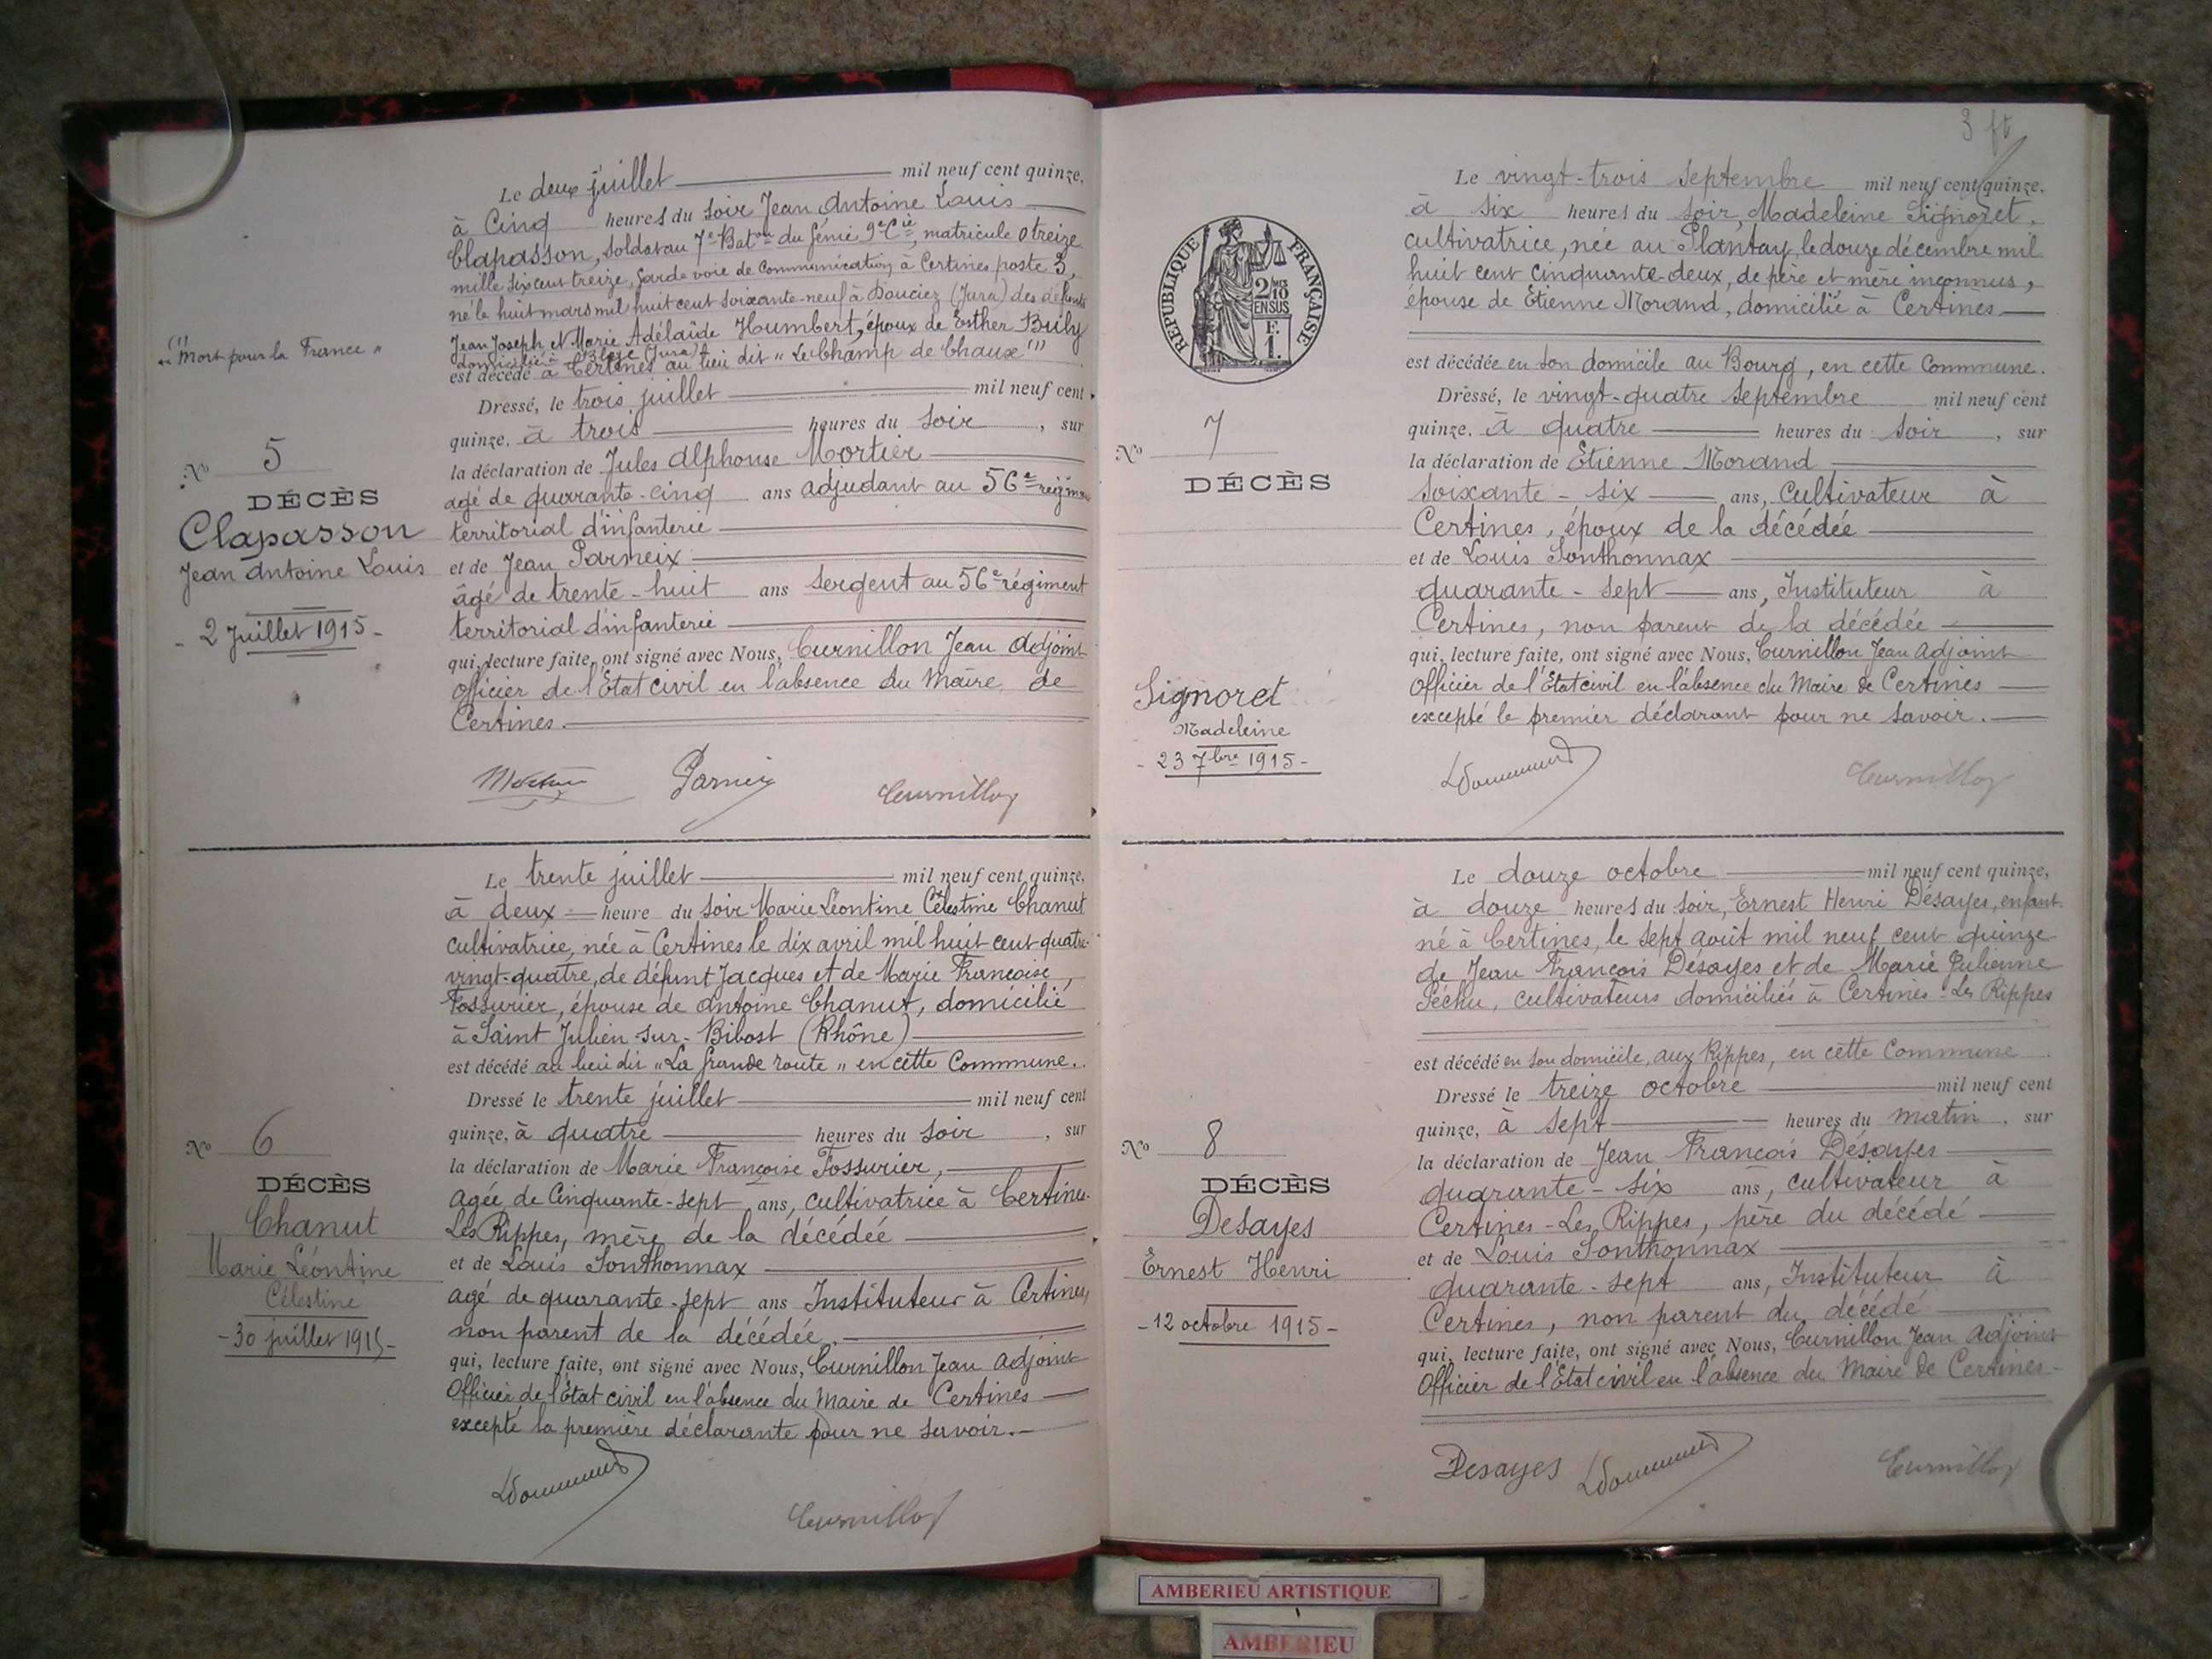 Le deux juillet mil neuf cent quinze,
à Cinq heures du soir Jean Antoine Louis
Clapasson, soldat au 7e Baton du Génie 9e Cie, matricule 0 treize
mille six cent treize, garde voie de Communication à Certines poste 3,
né le huit mars mil huit cent soixante-neuf à Douciez (Jura) des défunts
Jean Joseph et Marie Adélaïde Humbert, époux de Esther Buly
domicilié à Blye (Jura)
est décédé à Certines au lieu dit "Le Champ de Chaux" (1)
Dressé, le trois juillet mil neuf cent
quinze, à trois heures du soir, sur
la déclaration de Jules Alphonse Mortier
agé de quarante-cinq ans adjudant au 56e régim
territorial d'infanterie
et de Jean Parneix
âgé de trente-huit ans sergent au 56e régiment
territorial d'infanterie
qui, lecture faite, ont signé avec Nous, Curnillon Jean Adjoint
Officier de l'Etat civil en l'absence du Maire de
Certines.
Parneix Curnillon
(1)
"Mort pour la France"
No 5
DÉCÈS
Clapasson
Jean Antoine Louis
- 2 Juillet 1915 -
Le trente juillet mil neuf cent quinze,
à deux heure du soir Marie Léontine Célestine Chanut
cultivatrice, née à Certines le dix avril mil huit cent quatre-
vingt-quatre, de défunt Jacques et de Marie Françoise
Fossurier, épouse de Antoine Chanut, domicilié
à Saint Julien-sur-Bibost (Rhône)
est décédé au lieu dit "La Grande route" en cette Commune.
Dressé le trente juillet mil neuf cent
quinze, à quatre heures du soir, sur
la déclaration de Marie Françoise Fossurier,
agée de Cinquante-sept ans, cultivatrice à Certines-
Les Rippes, mère de la décédée
et de Louis Sonthonnax
agé de quarante-sept ans Instituteur à Certines,
non parent de la décédée.
qui, lecture faite, ont signé avec Nous, Curnillon Jean Adjoint
Officier de l'Etat civil en l'absence du Maire de Certines
excepté la première déclarante pour ne savoir.
Curnillon
No 6
DÉCÈS
Chanut
Marie Léontine
Célestine
- 30 juillet 1915 -
3
RÉPUBLIQUE FRANÇAISE
2 DMES 10
EN SUS
F.
1.
Le vingt-trois septembre mil neuf cent quinze,
à six heures du soir, Madeleine Signoret,
cultivatrice, née au Plantay, le douze décembre mil
huit cent cinquante-deux, de père et mère inconnus,
épouse de Etienne Morand, domicilié à Certines
est décédée en son domicile au Bourg, en cette Commune.
Dressé, le vingt-quatre septembre mil neuf cent
quinze, à quatre heures du soir, sur
la déclaration de Etienne Morand
soixante-six ans, cultivateur à
Certines, époux de la décédée
et de Louis Sonthonnax
quarante-sept ans, Instituteur à
Certines, non parent de la décédée
qui, lecture faite, ont signé avec Nous, Curnillon Jean Adjoint
Officier de l'Etat civil en l'absence du Maire de Certines
excepté le premier déclarant pour ne savoir.
Curnillon
No 7
DÉCÈS
Signoret
Madeleine
- 23 7bre 1915 -
Le douze octobre mil neuf cent quinze,
à douze heures du soir, Ernest Henri Désayes, enfant
né à Certines, le sept août mil neuf cent quinze
de Jean François Désayes et de Marie Julienne
Péchu, cultivateurs domiciliés à Certines-Les Rippes
est décédé en son domicile, aux Rippes, en cette Commune.
Dressé le treize octobre mil neuf cent
quinze, à sept heures du matin, sur
la déclaration de Jean François Désayes
quarante-six ans, cultivateur à
Certines-Les Rippes, père du décédé
et de Louis Sonthonnax
quarante-sept ans, Instituteur à
Certines, non parent du décédé
qui, lecture faite, ont signé avec Nous, Curnillon Jean Adjoint
Officier de l'Etat civil en l'absence du Maire de Certines
Desayes Curnillon
No 8
DÉCÈS
Desayes
Ernest Henri
- 12 octobre 1915 -
AMBERIEU ARTISTIQUE
AMBERIEU